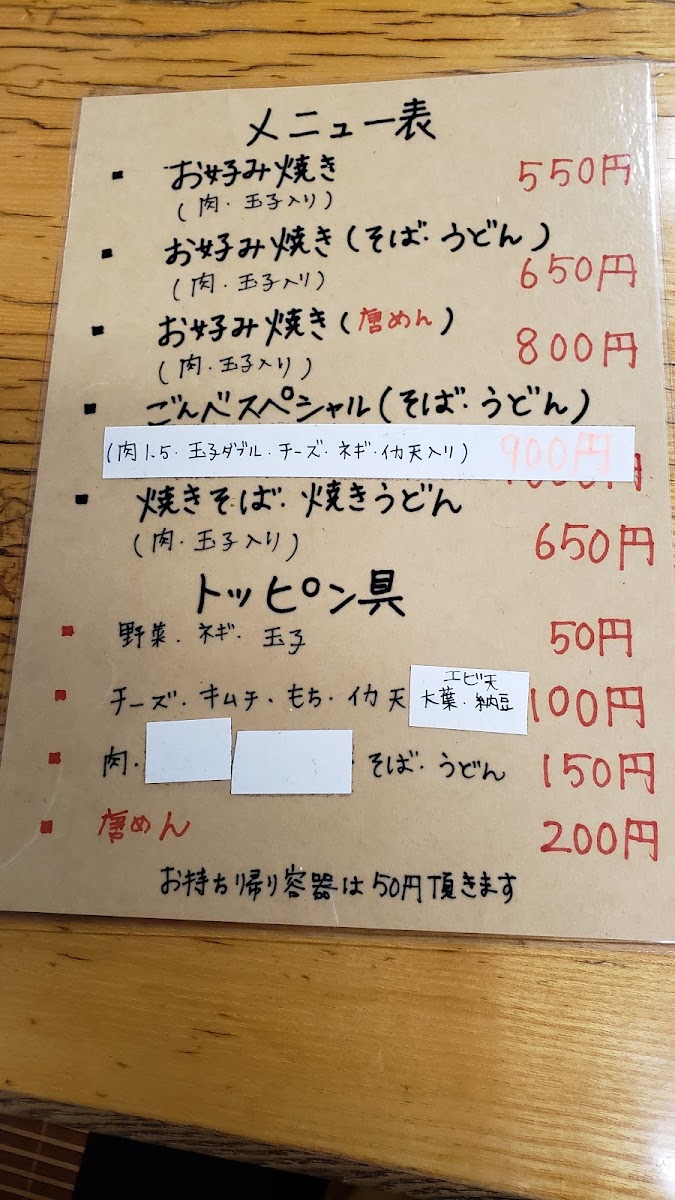 メニュー表
お好み焼き 550円
(肉・玉子入り)
お好み焼き(そば・うどん) 650円
(肉・玉子入り)
お好み焼き(唐めん) 800円
(肉・玉子入り)
ごんべスペシャル(そば・うどん)
(肉1.5・玉子ダブル・チーズ・ネギ・イカ天入り) 900円
焼きそば・焼きうどん 650円
(肉・玉子入り)
トッピン具
野菜・ネギ・玉子 50円
チーズ・キムチ・もち・イカ天 エビ天 100円
大葉・納豆
肉・そば・うどん 150円
唐めん 200円
お持ち帰り容器は50円頂きます